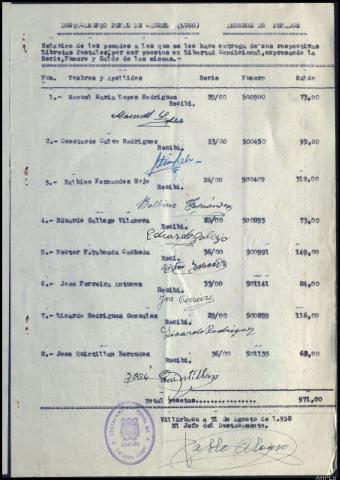 DESTACAMENTO PENAL DE CAUREL (LUGO) AHORROS DE PENADOS
Relacion de los penados a los que se les hace entrega de sus respectivas
Libretas Postales, por ser puestos en Libertad Condicional, expresando la
Serie, Numero y Saldo de las mismas.-
Num. Nombres y Apellidos Serie Numero Saldo
1.- Manuel Maria Lopez Rodriguez 29/00 500900 73,00
Recibi.
Manuel Lopez
2.- Constante Calvo Rodriguez 53/00 500450 95,00
Recibi.
3.- Balbino Fernandez Rojo 26/00 500409 319,00
Recibi.
Balbino Fernandez
4.- Eduardo Gallego Vilanova 29/00 500893 73,00
Recibi.
Eduardo Gallego
5.- Nestor F. Taboada Cacheda 36/00 500991 149,00
Reci.
Nestor Taboada
6.- Jose Ferreira Antunes 33/00 501141 84,00
Recibi.
Jose Ferreira
7.- Licardo Rodriguez Gonzalez 29/00 500859 116,00
Recibi.
Lisardo Rodriguez
8.- Jose Quintillan Bermudez 36/00 501135 62,00
Recibi.
José Quintillan
Total pesetas.......... 971,00
Villarbacu a 31 de Agosto de 1.958
El Jefe del Destacamento.